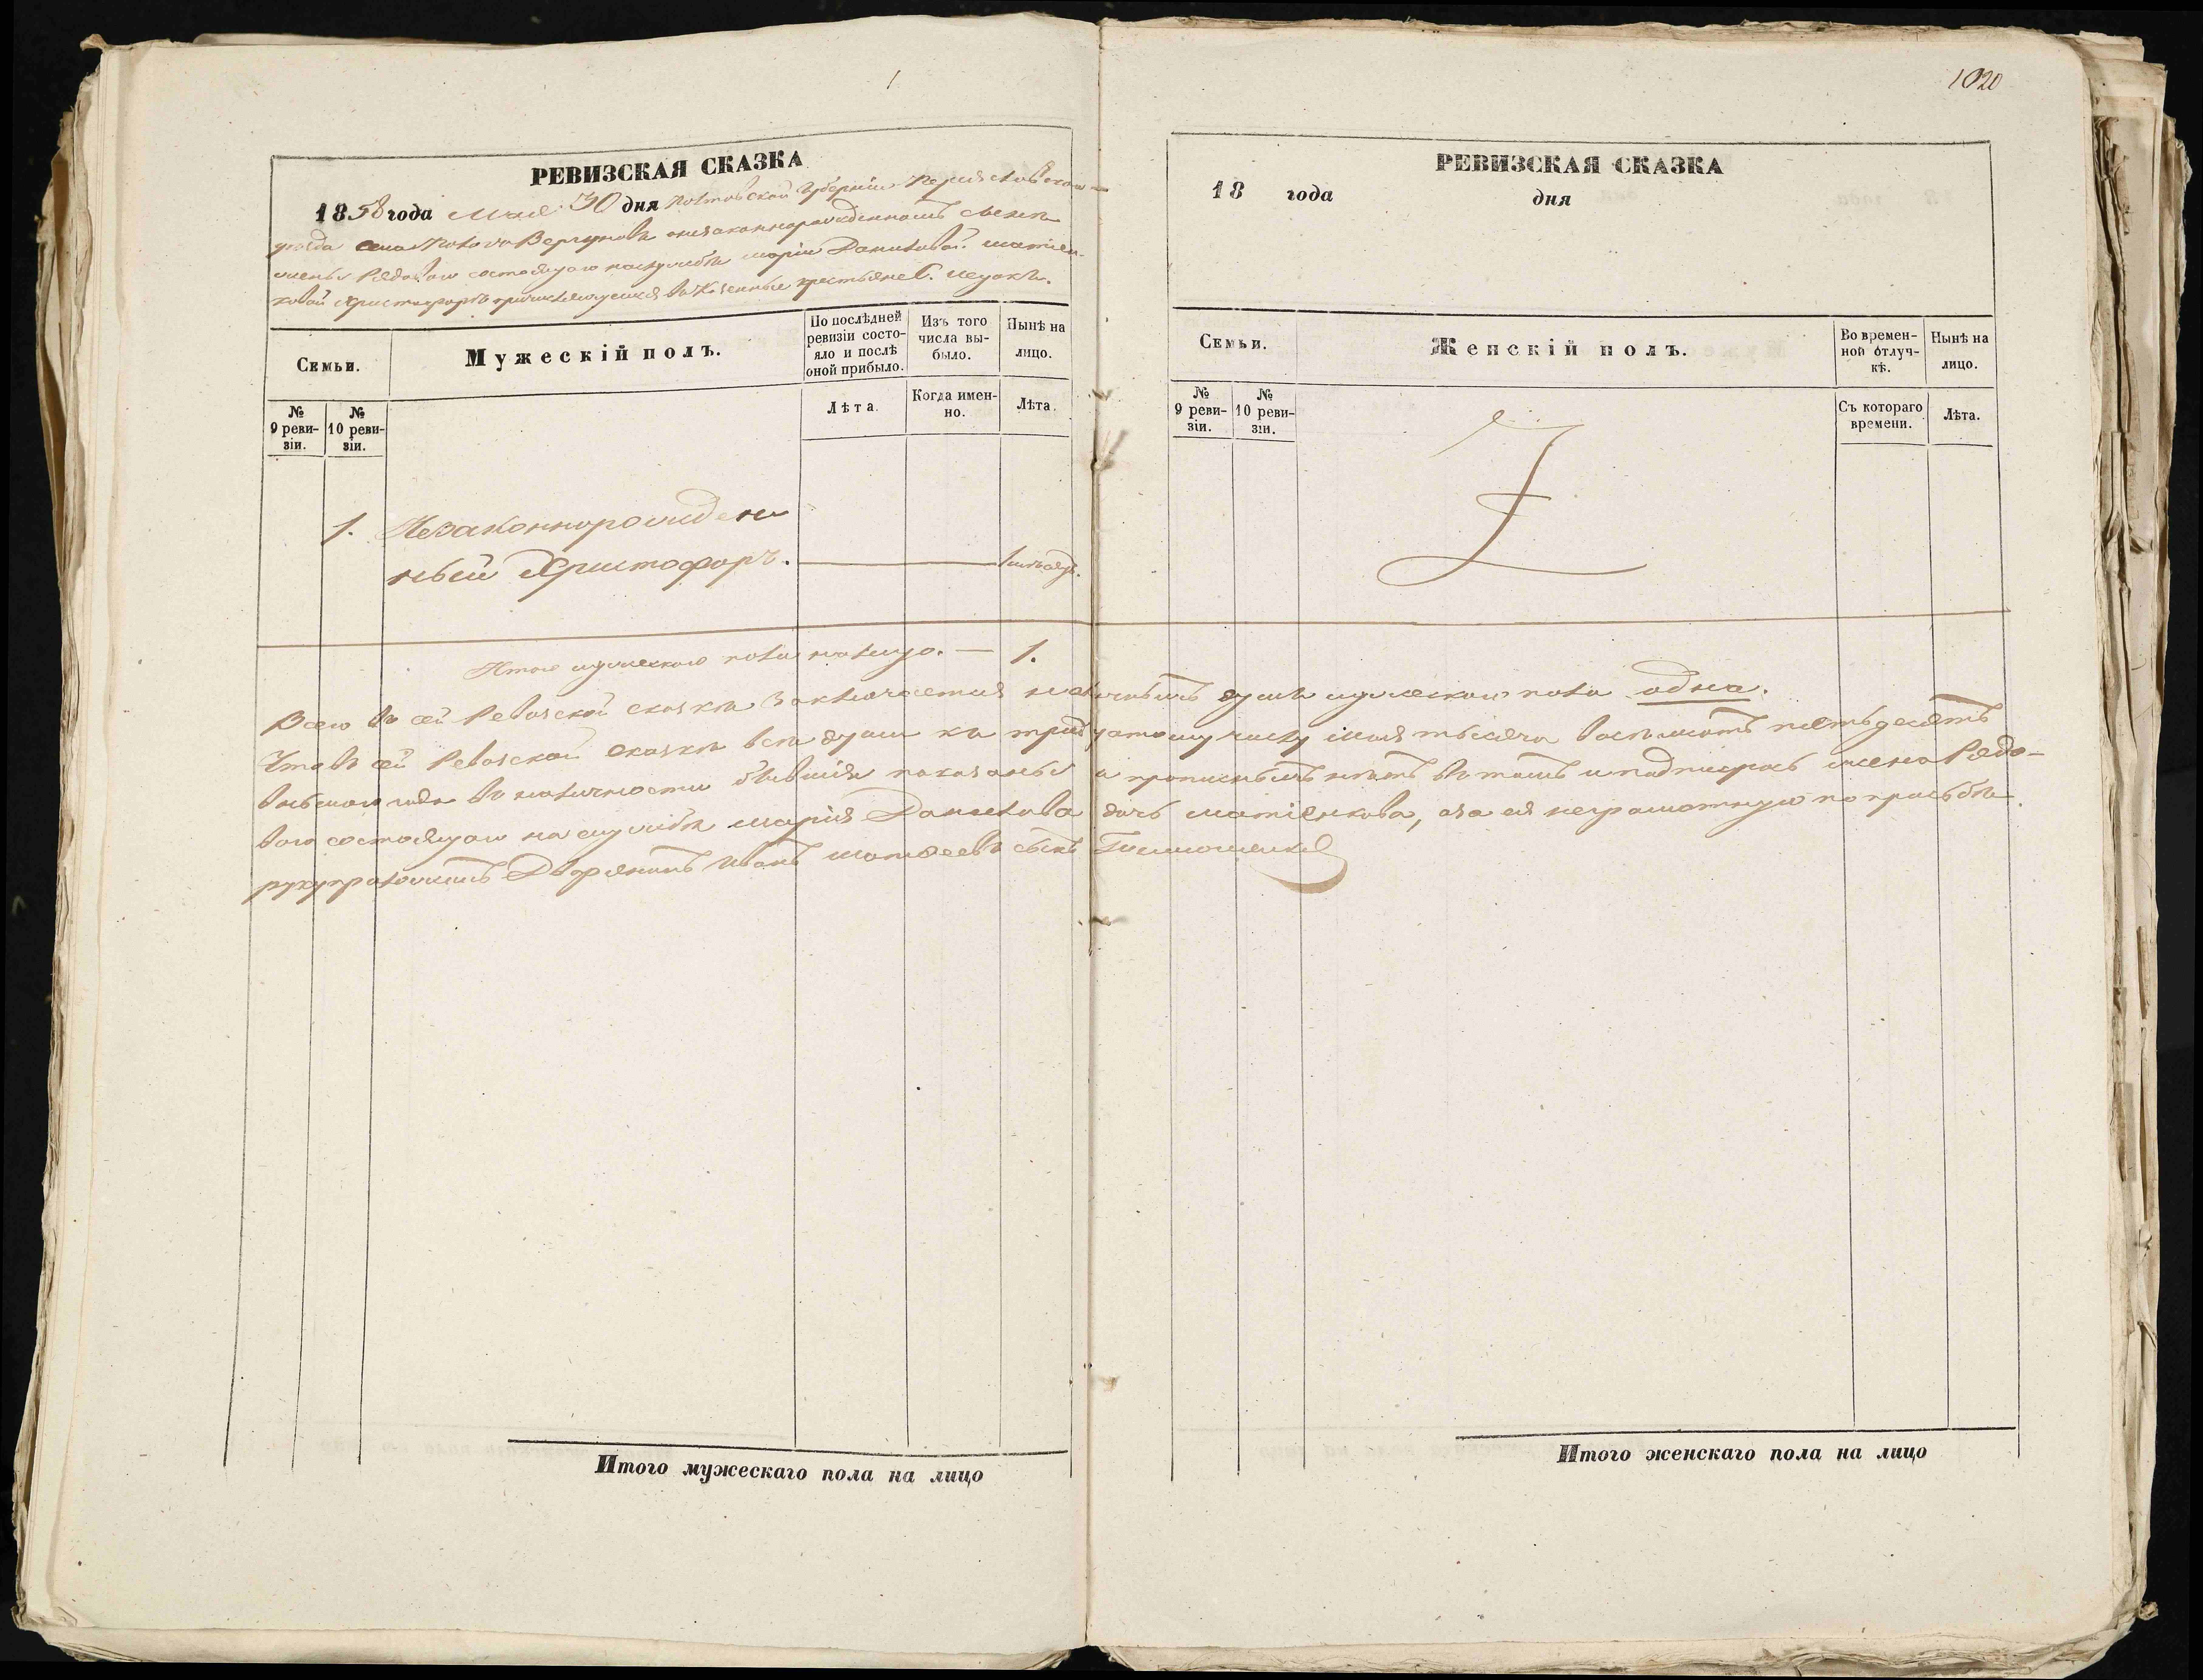 1
РЕВИЗСКАЯ СКАЗКА
1858 года Мая 30 дня Полтавской Губерніи Переяславскаго
уезда села Малова Вергунова о незаконнорожденномъ сыне
жены Рядоваго состоящаго на службе Маріи Даниловой Матіен-
ковой Христофоре причисляющемся въ Казенные крестьяне с.
Семьи.
Мужескій полъ.
По послѣдней ревизіи состо-
яло и послѣ оной прибыло.
Изъ того числа вы-
было.
Нынѣ на лицо.
№ 9 реви-
зіи.
№ 10 реви-
зіи.
Лѣта.
Когда имен-
но.
Лѣта.
1. Незаконнорожден
ный Христофоръ.
Итого мужескаго пола налицо. — 1.
Всего въ сей Ревизской сказке заключается наличныхъ душъ мужескаго пола одна.
Что въ сей Ревизской сказки все души къ тридцатому числу Мая тысяча восемьсотъ пятьдесятъ
восьмого года въ наличности бывшія показаны и прописныхъ нетъ въ томъ и подписуюсь жена Рядо-
ваго состоящаго на службе Марія Данилова дочь Матіенкова, а за ея неграмотную по прозьбе
руку приложилъ Дворянинъ Иванъ Матвеевъ сынъ
Итого мужескаго пола на лицо
1020
РЕВИЗСКАЯ СКАЗКА
18 года дня
Семьи.
Женскій полъ.
Во времен-
ной отлуч-
кѣ.
Нынѣ на лицо.
№ 9 реви-
зіи.
№ 10 реви-
зіи.
Съ котораго времени.
Лѣта.
Итого женскаго пола на лицо